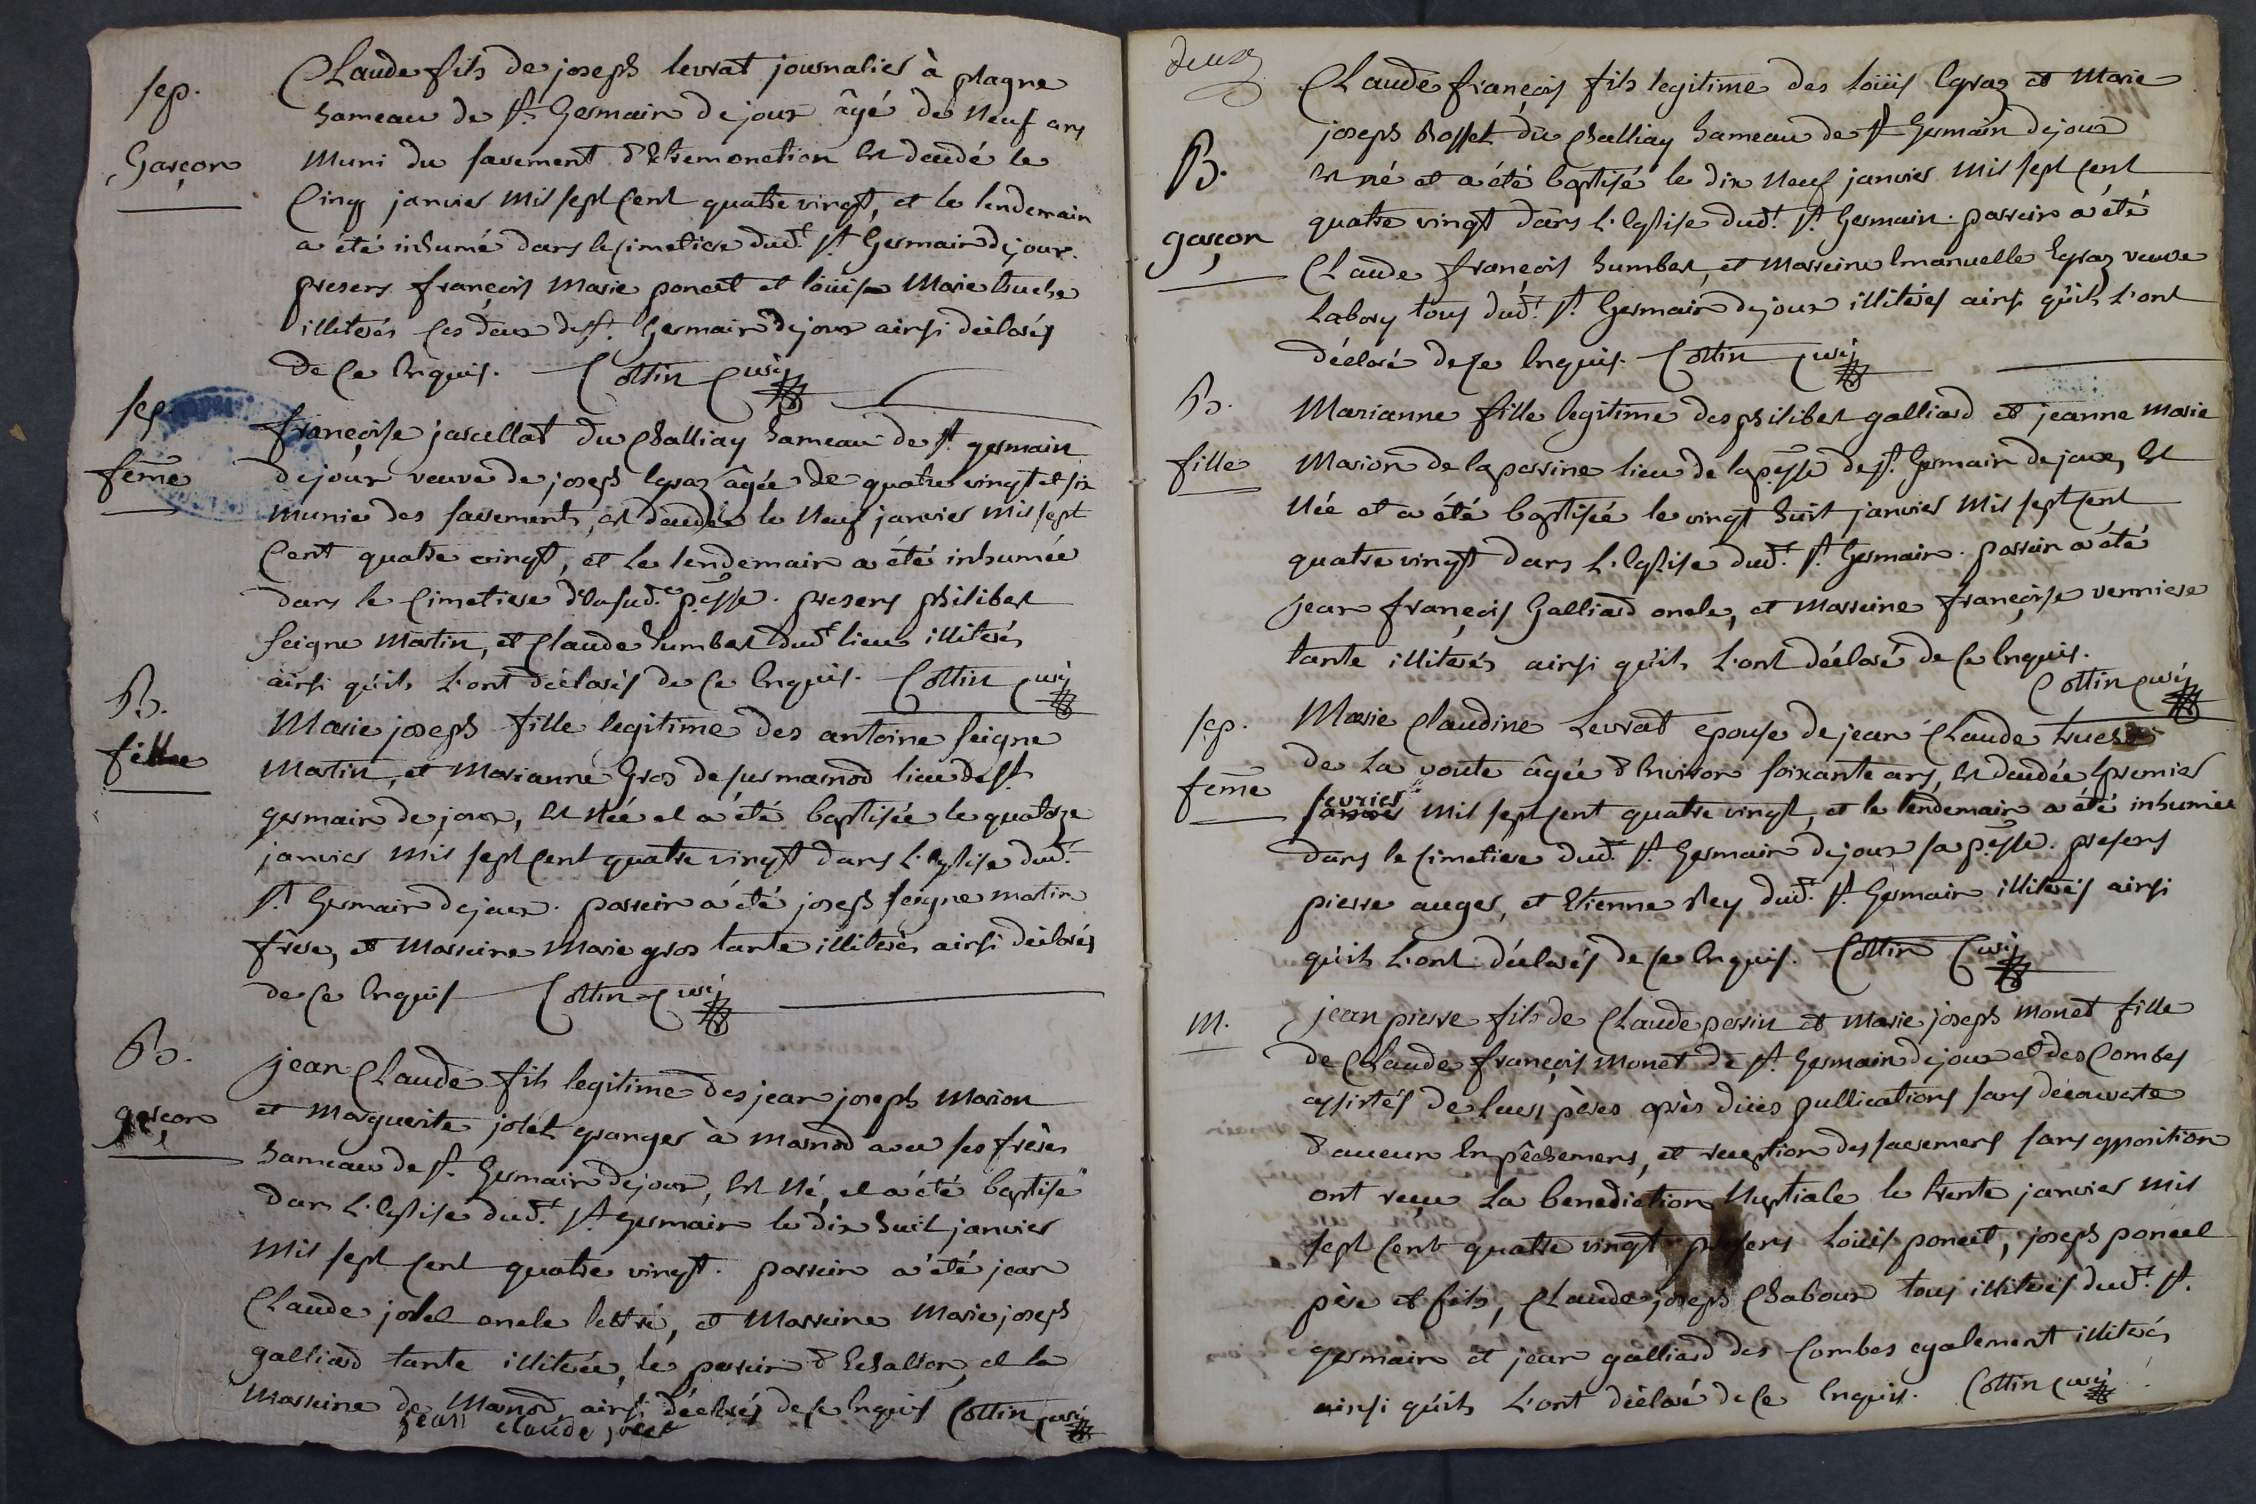 sep.
Garçon
Claude fils de joseph levrat journalier à plagne
hameau de st. Germain de joux âgé de neuf ans
muni du sacrement d'Extremonction est décédé le
Cinq janvier mil sept cent quatre vingt, et le lendemain
a été inhumé dans le cimetiere dud.t st. Germain de joux.
presens françois Marie poncet et loüise Marie truche
illiterés ces deux de st. Germain de joux ainsi déclarés
de ce Enquis. Cottin Curé
sep.
feme
françoise jascellat du Challiay hameau de st. germain
de joux veuve de joseph Egraz âgée de quatre vingt et six
munie des sacrements, est décédée le Neuf janvier mil sept
Cent quatre vingt, et le lendemain a été inhumée
dans le Cimetiere de la sud.e p.sse. presens philibert
seigne Martin, et Claude humbert dud.t lieu illiterés
ainsi qu'ils L'ont déclarés de ce Enquis. Cottin Curé
B.
fille
Marie joseph fille legitime des antoine seigne
Martin, et Marianne Gros de sus marnod lieu de st.
germain de joux, est Née et a été baptisée le quatorze
janvier mil sept cent quatre vingt dans L'Eglise dud.t
st. Germain de joux. parrein a été joseph seigne martin
frère, et Marreine Marie gros tante illiterés ainsi déclarés
de ce Enquis Cottin Curé
B.
garçon
jean Claude fils legitime des jean joseph Marion
et Marguerite jolet granger à marnod avec ses frères
hameau de st. Germain de joux, est Né, et a été baptisé
dans L'Eglise dud.t st. germain le dix huit janvier
Mil sept cent quatre vingt. parrein a été jean
Claude jolet oncle lettré, et Marreine Marie joseph
galliard tante illiterée, le parrein d'Echallon, et la
Marreine de Marnod ainsi déclarés de ce Enquis Cottin Curé
jean claude jolet
deux
B.
garçon
Claude françois fils legitime des loüis Egraz et Marie
joseph Rosset du Challiay hameau de st. Germain de joux
est né et a été baptisé le dix Neuf janvier mil sept cent
quatre vingt dans L'Eglise dud.t st. Germain. parrein a été
Claude françois humbert, et Marreine Emanuelle Egraz veuve
Labory tous dud.t st. Germain de joux illiterés ainsi qu'ils L'ont
déclaré de ce Enquis. Cottin Curé
B.
fille
Marianne fille legitime des philibert galliard et jeanne Marie
Marion de la perrine lieu de la p.sse de st. Germain de joux, est
Née et a été baptisée le vingt huit janvier Mil sept cent
quatre vingt dans L'Eglise dud.t st. Germain. parrein a été
jean françois Galliard oncle, et Marreine françoise verniere
tante illiterés ainsi qu'ils L'ont déclaré de ce Enquis.
Cottin Curé
sep.
feme
Marie Claudine Levrat epouse de jean Claude truche
de La voute âgée d'Environ soixante ans, est décédée le premier
fevrier
janvier mil sept cent quatre vingt, et le lendemain a été inhumée
dans le cimetiere dud.t st. Germain de joux sa p.sse. presens
pierre auger, et Etienne Rey dud.t st. Germain illiterés ainsi
qu'ils L'ont déclarés de ce Enquis. Cottin Curé
M.
jean pierre fils de Claude perrin et Marie joseph monet fille
de Claude françois monet de st. Germain de joux et des Combes
assistés de leurs pères après düës publications sans décowerte
d'aucun Enpêchemens, et reception des sacremens sans opposition
ont reçu La benediction Nuptiale le trente janvier mil
sept cent quatre vingt presens Loüis poncet, joseph poncet
père et fils, Claude joseph Chabour tous illiterés dud.t st.
germain et jean galliard des Combes egalement illiterés
ainsi qu'ils L'ont déclaré de ce Enquis. Cottin Curé